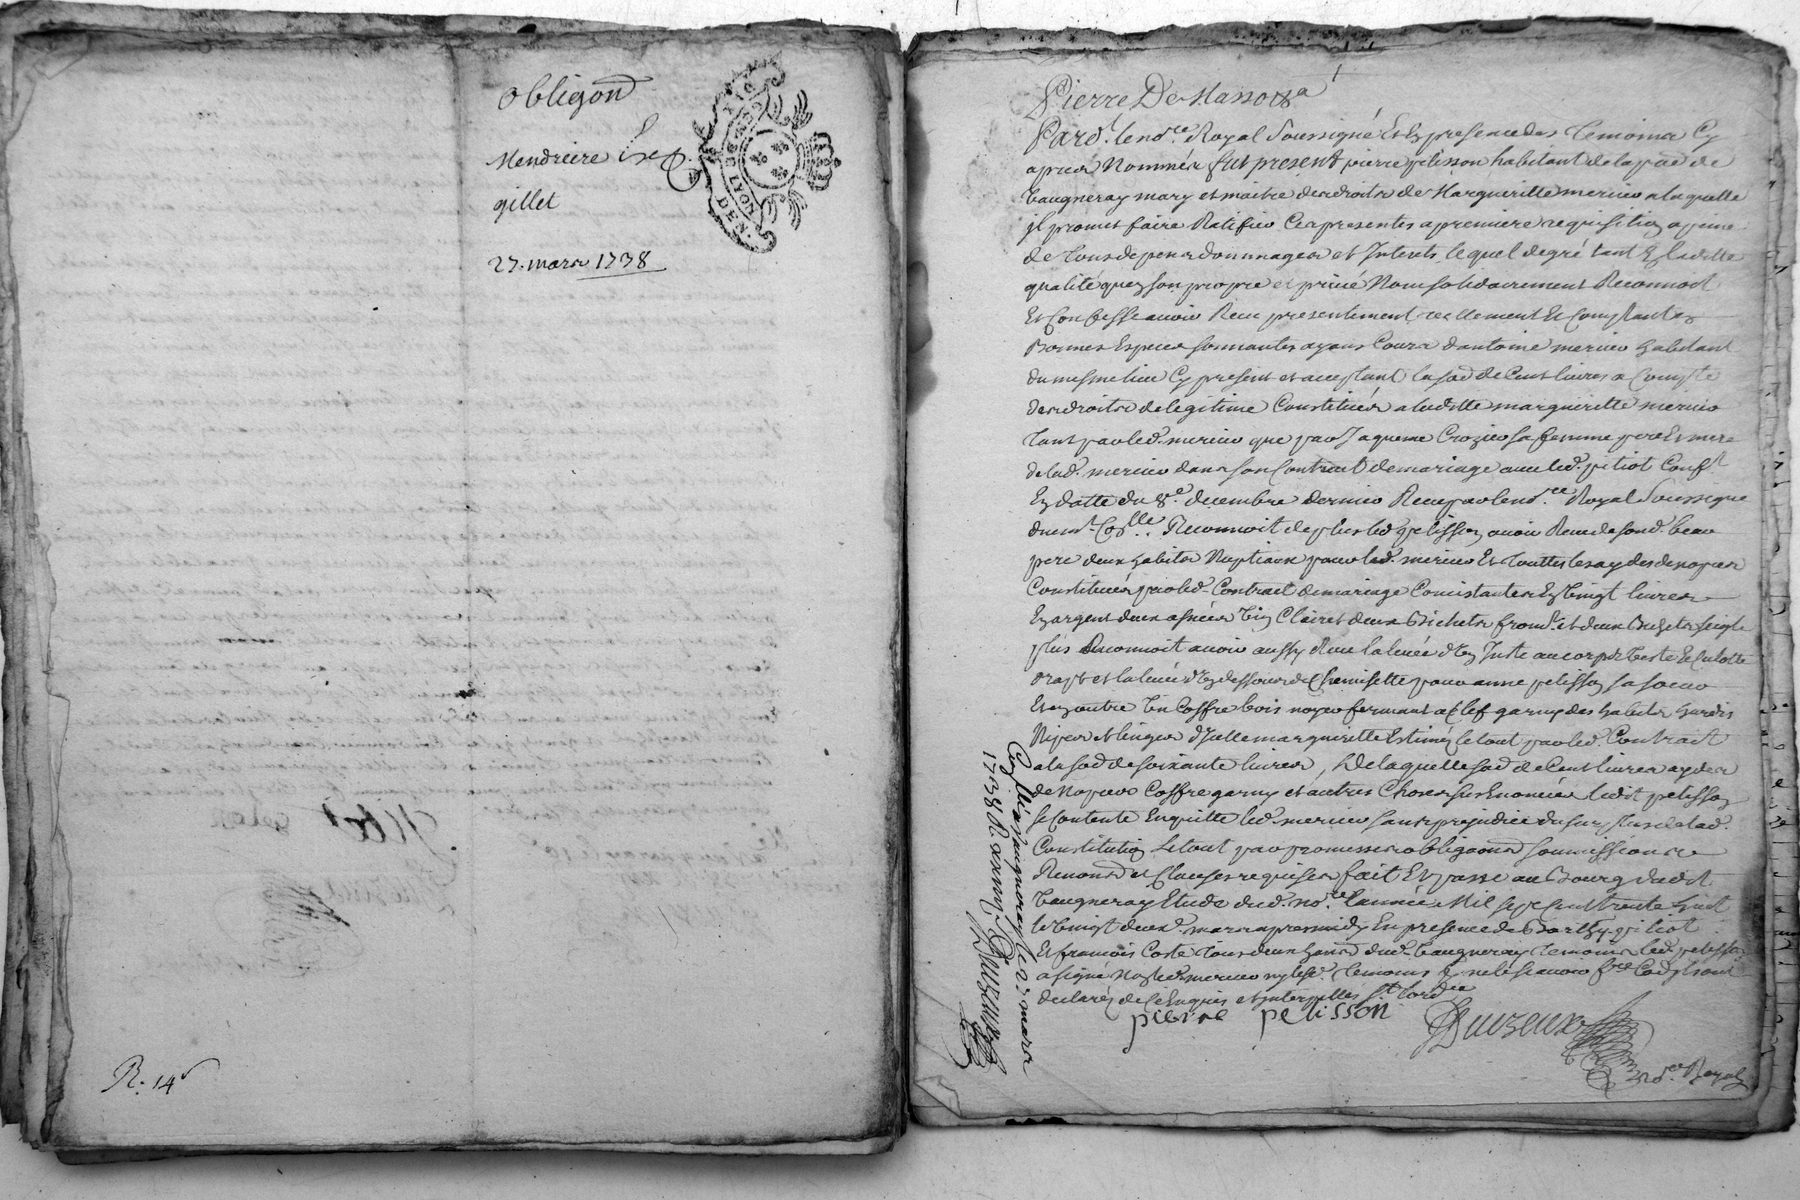 obligaōn
Mendriere
gillet
27. mars 1738
GEN. DE LYON
DEN.
R. 14s
Pierre De Masso &a
Pard. le no.re Royal Soussigné Et En presence des Temoins Cy
apres Nommés fut present pierre pelisson habitant de la par.se de
Vaugneray mary et maitre des droits de Margueritte mercier a laquelle
jl promet faire Ratifier Ces presentes a premiere requisition a peine
de Tous depens dommages et Interets lequel de gré tant En ladite
qualité qu'en son propre et privé Nom solidairement Reconnoit
Et Confesse avoir Reçu presentement reellement Et Comptant en
Bonnes Especes sonnantes ayans Cours d'antoine mercier habitant
du mesme lieu Cy present et acceptant la som̄e de Cent livres a Compte
des droits de legitime Constitués a ladite margueritte mercier
Tant par led. mercier que par Jaqueme Crozier sa femme pere Et mere
de lad. mercier dans son Contract de mariage avec led. pelisson
En datte du 8.e decembre dernier Reçu par le no.re Royal Soussigné
Reconnoit de plus led. pelisson avoir Reçu de sond. beau
pere deux habits Nuptiaux pour lad. mercier Et Touttes les aydes de nopces
Constituées par led. Contract de mariage Consistantes En Vingt livres
En argent deux asnées Vin Clairet deux Bichets from.t et deux Bichets seigle
plus Reconnoit avoir aussy Reçu la levée d'un Juste au corps Veste Et Culotte
drap et la levée d'un dessous de Chemisette pour anne pelisson sa soeur
Et en outre Un Coffre bois noyer fermant a Clef garny des habits hardes
Nipes et linges d'jcelle margueritte Estimés le tout par led. Contract
a la som̄e de soixante livres, de laquelle som̄e de Cent livres aydes
de Nopces Coffre garny et autres Choses sus Enoncées ledit pelisson
se Contente En quitte led. mercier sans prejudice du surplus de lad.
Constitution Le tout par promesses obligaōns soumissions
Renonōns et Clauses requises fait Et passé au Bourg dudit
Vaugneray Etude dud. no.re l'année Mil sept Cent trente huit
le Vingt deux mars apres midy En presence de Barthy. pitiot
Et francois Coste Tous deux hab.ts dud. Vaugneray Temoins led. pelisson
a signé Non led. mercier ny lesd. Temoins
declaré de ce Enquis et interpellés
pierre pelisson
Duzeux
no.re Royal
Con.llé a Vaugneray le 27 mars
1738 R douze s. Duzeux